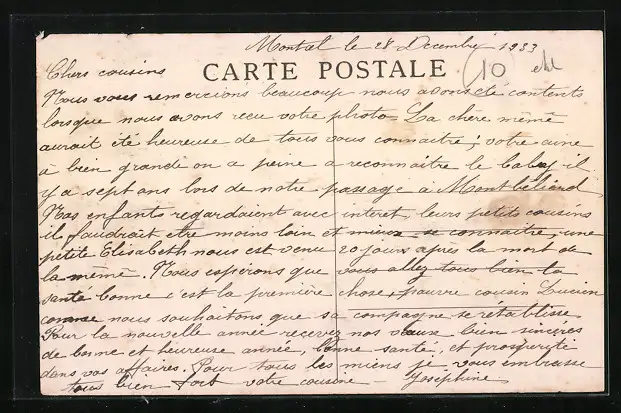 Montret le 28 Decembre 1933
Chers cousins
CARTE POSTALE
10
Nous vous remercions beaucoup nous avons été contents
lorsque nous avons reçu votre photo - La chère mémé
aurait été heureuse de tous vous connaitre ; votre ainé
à bien grandi on a peine a reconnaitre le baby il
y a sept ans lors de notre passage à Montbéliard
Nos enfants regardaient avec interet, leurs petits cousins
il faudrait etre moins loin et mieux se connaitre, une
petite Elisabeth nous est venu 20 jours après la mort de
la mémé. Nous esperons que vous allez tous bien la
santé bonne c'est la première chose, pauvre cousin Lucien
comme nous souhaitons que sa compagne se rétablisse
Pour la nouvelle année recevez nos vœux bien sincères
de bonne et heureuse année, bonne santé, et prosperité
dans vos affaires. Pour tous les miens je vous embrasse
tous bien fort votre cousine - Joséphine